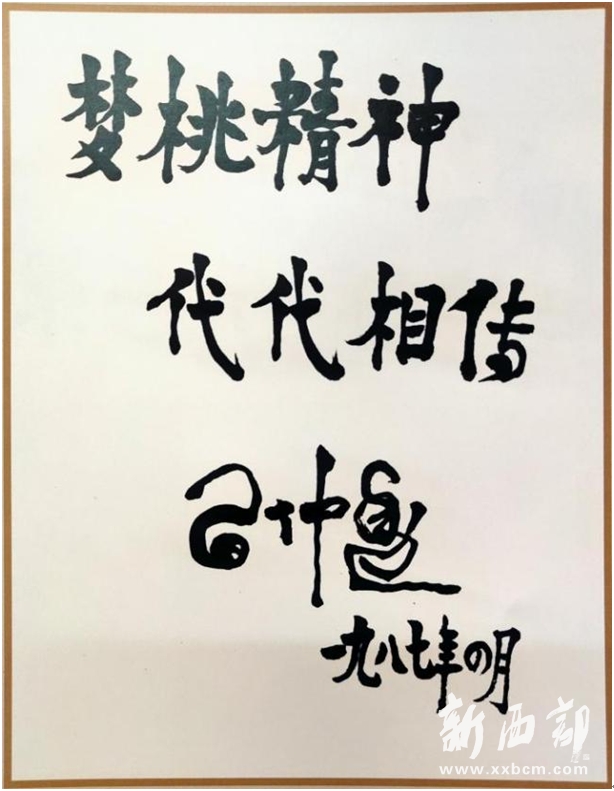 梦桃精神
代代相传
一九八七年四月
新西部
www.xxbcm.com